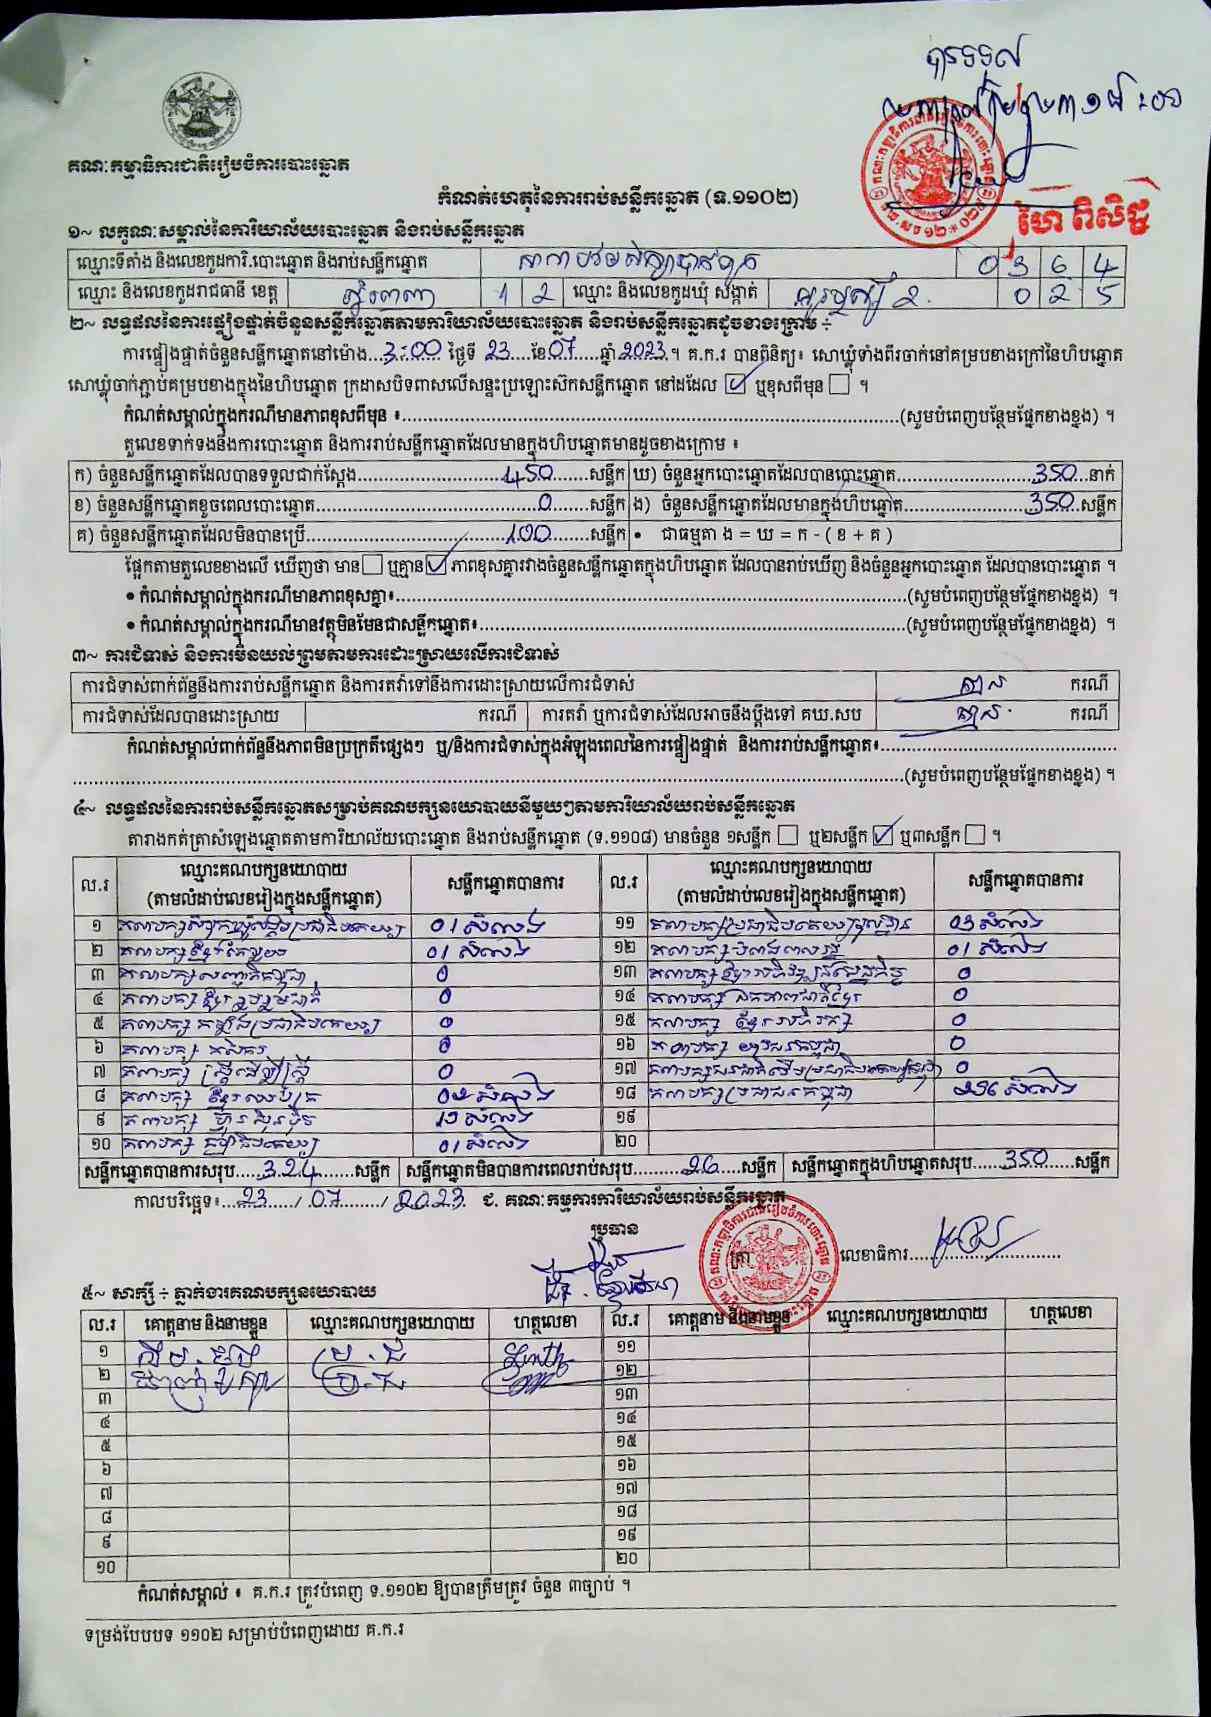 បានទទួល
គណៈកម្មាធិការជាតិរៀបចំការបោះឆ្នោត
ហៃ ពិសិដ្ឋ
កំណត់ហេតុនៃការរាប់សន្លឹកឆ្នោត (ទ.១១០២)
១~ លក្ខណៈសម្គាល់នៃការិយាល័យបោះឆ្នោត និងរាប់សន្លឹកឆ្នោត
ឈ្មោះទីតាំង និងលេខកូដការិ.បោះឆ្នោត និងរាប់សន្លឹកឆ្នោត 0 3 6 4
ឈ្មោះ និងលេខកូដរាជធានី ខេត្ត ភ្នំពេញ 1 2 ឈ្មោះ និងលេខកូដឃុំ សង្កាត់ 2 0 2 5
២~ លទ្ធផលនៃការផ្ទៀងផ្ទាត់ចំនួនសន្លឹកឆ្នោតតាមការិយាល័យបោះឆ្នោត និងរាប់សន្លឹកឆ្នោតដូចខាងក្រោម ÷
ការផ្ទៀងផ្ទាត់ចំនួនសន្លឹកឆ្នោតនៅម៉ោង...3:00 ថ្ងៃទី 23....ខែ07....ឆ្នាំ 2023.។ គ.ក.រ បានពិនិត្យ៖ សោឃ្លុំទាំងពីរចាក់នៅគម្របខាងក្រៅនៃហិបឆ្នោត
សោឃ្លុំចាក់ភ្ជាប់គម្របខាងក្នុងនៃហិបឆ្នោត ក្រដាសបិទពាសលើសន្ទះប្រឡោះស៊កសន្លឹកឆ្នោត នៅដដែល ☑ ឬខុសពីមុន ☐ ។
កំណត់សម្គាល់ក្នុងករណីមានភាពខុសពីមុន ៖...(សូមបំពេញបន្ថែមផ្នែកខាងខ្នង) ។
តួលេខទាក់ទងនឹងការបោះឆ្នោត និងការរាប់សន្លឹកឆ្នោតដែលមានក្នុងហិបឆ្នោតមានដូចខាងក្រោម ៖
ក) ចំនួនសន្លឹកឆ្នោតដែលបានទទួលជាក់ស្ដែង...450...សន្លឹក ឃ) ចំនួនអ្នកបោះឆ្នោតដែលបានបោះឆ្នោត...350...នាក់
ខ) ចំនួនសន្លឹកឆ្នោតខូចពេលបោះឆ្នោត...0...សន្លឹក ង) ចំនួនសន្លឹកឆ្នោតដែលមានក្នុងហិបឆ្នោត...350.សន្លឹក
គ) ចំនួនសន្លឹកឆ្នោតដែលមិនបានប្រើ...100...សន្លឹក • ជាធម្មតា ង = ឃ = ក - ( ខ + គ )
ផ្អែកតាមតួលេខខាងលើ ឃើញថា មាន ☐ ឬគ្មាន ☑ ភាពខុសគ្នារវាងចំនួនសន្លឹកឆ្នោតក្នុងហិបឆ្នោត ដែលបានរាប់ឃើញ និងចំនួនអ្នកបោះឆ្នោត ដែលបានបោះឆ្នោត ។
• កំណត់សម្គាល់ក្នុងករណីមានភាពខុសគ្នា៖...(សូមបំពេញបន្ថែមផ្នែកខាងខ្នង) ។
• កំណត់សម្គាល់ក្នុងករណីមានវត្ថុមិនមែនជាសន្លឹកឆ្នោត៖...(សូមបំពេញបន្ថែមផ្នែកខាងខ្នង) ។
៣~ ការជំទាស់ និងការមិនយល់ព្រមតាមការដោះស្រាយលើការជំទាស់
ការជំទាស់ពាក់ព័ន្ធនឹងការរាប់សន្លឹកឆ្នោត និងការតវ៉ាទៅនឹងការដោះស្រាយលើការជំទាស់ គ្មាន ករណី
ការជំទាស់ដែលបានដោះស្រាយ ករណី ការតវ៉ា ឬការជំទាស់ដែលអាចនឹងប្ដឹងទៅ គឃ.សប គ្មាន ករណី
កំណត់សម្គាល់ពាក់ព័ន្ធនឹងភាពមិនប្រក្រតីផ្សេងៗ ឬ/និងការជំទាស់ក្នុងអំឡុងពេលនៃការផ្ទៀងផ្ទាត់ និងការរាប់សន្លឹកឆ្នោត៖...
...(សូមបំពេញបន្ថែមផ្នែកខាងខ្នង) ។
៤~ លទ្ធផលនៃការរាប់សន្លឹកឆ្នោតសម្រាប់គណបក្សនយោបាយនីមួយៗតាមការិយាល័យរាប់សន្លឹកឆ្នោត
តារាងកត់ត្រាសំឡេងឆ្នោតតាមការិយាល័យបោះឆ្នោត និងរាប់សន្លឹកឆ្នោត (ទ.១១០៨) មានចំនួន ១សន្លឹក ☐ ឬ២សន្លឹក ☑ ឬ៣សន្លឹក ☐ ។
ល.រ ឈ្មោះគណបក្សនយោបាយ (តាមលំដាប់លេខរៀងក្នុងសន្លឹកឆ្នោត) សន្លឹកឆ្នោតបានការ ល.រ ឈ្មោះគណបក្សនយោបាយ (តាមលំដាប់លេខរៀងក្នុងសន្លឹកឆ្នោត) សន្លឹកឆ្នោតបានការ
១ 01 សំលេង ១១ 03 សំលេង
២ គណបក្ស ខ្មែរតែមួយ 01 សំលេង ១២ 01 សំលេង
៣ 0 ១៣ 0
៤ គណបក្ស ខ្មែររួបរួមជាតិ 0 ១៤ គណបក្ស ឯកភាពជាតិខ្មែរ 0
៥ គណបក្ស កម្លាំងប្រជាធិបតេយ្យ 0 ១៥ គណបក្ស ខ្មែរអភិរក្ស 0
៦ គណបក្ស កសិករ 0 ១៦ គណបក្ស យុវជនកម្ពុជា 0
៧ គណបក្ស ស្ត្រីដើម្បីស្ត្រី 0 ១៧ 0
៨ សំលេង ១៨ គណបក្សប្រជាជនកម្ពុជា សំលេង
៩ គណបក្ស ហ្វ៊ុនស៊ិនប៉ិច សំលេង ១៩
១០ គណបក្ស ធម្មាធិបតេយ្យ 01 សំលេង ២០
សន្លឹកឆ្នោតបានការសរុប.....324.....សន្លឹក សន្លឹកឆ្នោតមិនបានការពេលរាប់សរុប.....26....សន្លឹក សន្លឹកឆ្នោតក្នុងហិបឆ្នោតសរុប.....350.....សន្លឹក
កាលបរិច្ឆេទ៖...23...../ 07......../ 2023 ជ. គណៈកម្មការការិយាល័យរាប់សន្លឹកឆ្នោត
ប្រធាន
ត្រា លេខាធិការ...
៥~ សាក្សី ÷ ភ្នាក់ងារគណបក្សនយោបាយ
ល.រ គោត្តនាម និងនាមខ្លួន ឈ្មោះគណបក្សនយោបាយ ហត្ថលេខា ល.រ គោត្តនាម និងនាមខ្លួន ឈ្មោះគណបក្សនយោបាយ ហត្ថលេខា
១ ១១
២ ១២
៣ ១៣
៤ ១៤
៥ ១៥
៦ ១៦
៧ ១៧
៨ ១៨
៩ ១៩
១០ ២០
កំណត់សម្គាល់ ៖ គ.ក.រ ត្រូវបំពេញ ទ.១១០២ ឱ្យបានត្រឹមត្រូវ ចំនួន ៣ច្បាប់ ។
ទម្រង់បែបបទ ១១០២ សម្រាប់បំពេញដោយ គ.ក.រ